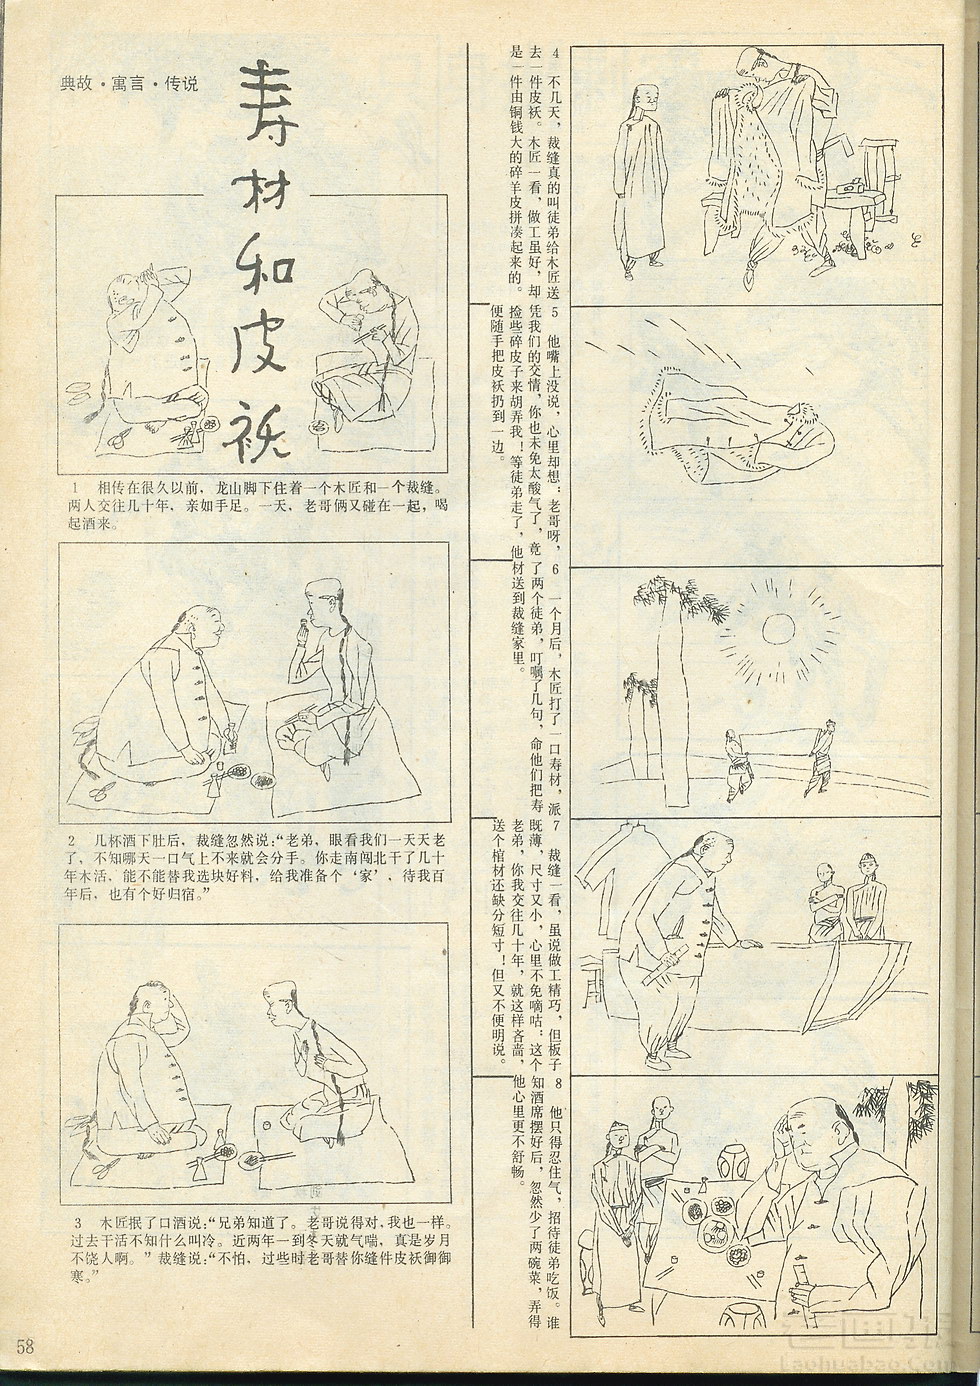 典故·寓言·传说
寿材和皮袄
1 相传在很久以前，龙山脚下住着一个木匠和一个裁缝。
两人交往几十年，亲如手足。一天，老哥俩又碰在一起，喝
起酒来。
2 几杯酒下肚后，裁缝忽然说：“老弟，眼看我们一天天老
了，不知哪天一口气上不来就会分手。你走南闯北干了几十
年木活，能不能替我选块好料，给我准备个‘家’，待我百
年后，也有个好归宿。”
3 木匠抿了口酒说：“兄弟知道了。老哥说得对，我也一样。
过去干活不知什么叫冷。近两年一到冬天就气喘，真是岁月
不饶人啊。”裁缝说：“不怕，过些时老哥替你缝件皮袄御御
寒。”
4 不几天，裁缝真的叫徒弟给木匠送
去一件皮袄。木匠一看，做工虽好，却
是一件由铜钱大的碎羊皮拼凑起来的。
5 他嘴上没说，心里却想：老哥呀，
凭我们的交情，你也未免太酸气了，竟
捡些碎皮子来胡弄我！等徒弟走了，他
便随手把皮袄扔到一边。
6 一个月后，木匠打了一口寿材，派
了两个徒弟，叮嘱了几句，命他们把寿
材送到裁缝家里。
7 裁缝一看，虽说做工精巧，但板子
既薄，尺寸又小，心里不免嘀咕：这个
老弟，你我交往几十年，就这样吝啬，
送个棺材还缺分短寸！但又不便明说。
8 他只得忍住气，招待徒弟吃饭。谁
知酒席摆好后，忽然少了两碗菜，弄得
他心里更不舒畅。
58
老画报
Laohuabao.Com